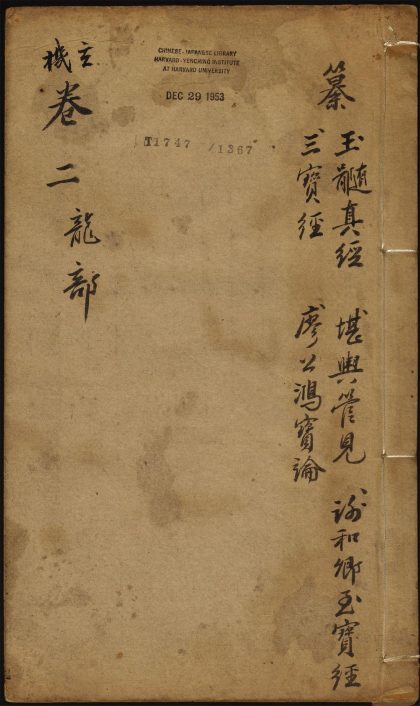 CHINESE-JAPANESE LIBRARY
HARVARD-YENCHING INSTITUTE
AT HARVARD UNIVERSITY
DEC 29 1953
T1747 /1367
纂
玉髓真經 堪輿管見 謝和卿玉寶經
三寶經 廖公鴻寶論
玄機
卷二龍部